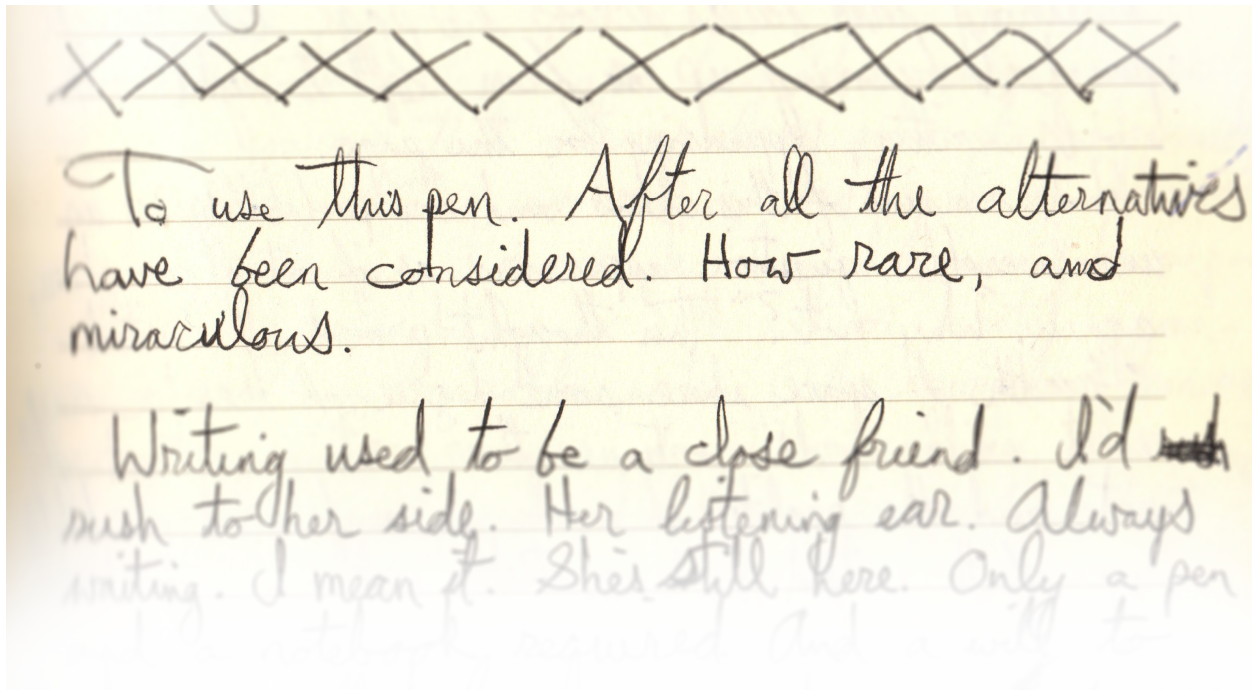 To use this pen. After all the alternatives
have been considered. How rare, and
miraculous.
Writing used to be a close friend. I'd
rush to her side. Her listening ear. Always
writing. I mean it. She's still here. Only a pen
and a notebook required. And a will to